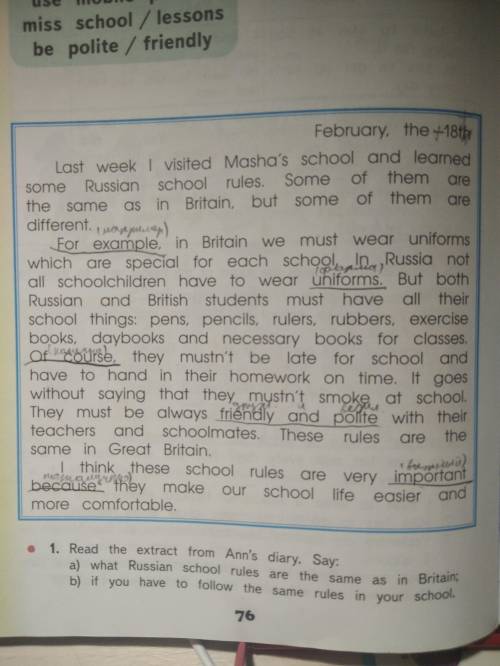 use mobile
miss school / lessons
be polite / friendly
February, the 18th
Last week I visited Masha's school and learned
some Russian school rules. Some of them are
the same as in Britain, but some of them are
different.
For example, in Britain we must wear uniforms
which are special for each school. In Russia not
all schoolchildren have to wear uniforms. But both
Russian and British students must have all their
school things: pens, pencils, rulers, rubbers, exercise
books, daybooks and necessary books for classes.
Of course, they mustn't be late for school and
have to hand in their homework on time. It goes
without saying that they mustn't smoke at school.
They must be always friendly and polite with their
teachers and schoolmates. These rules are the
same in Great Britain.
I think these school rules are very important
because they make our school life easier and
more comfortable.
1. Read the extract from Ann's diary. Say:
a) what Russian school rules are the same as in Britain;
b) if you have to follow the same rules in your school.
76